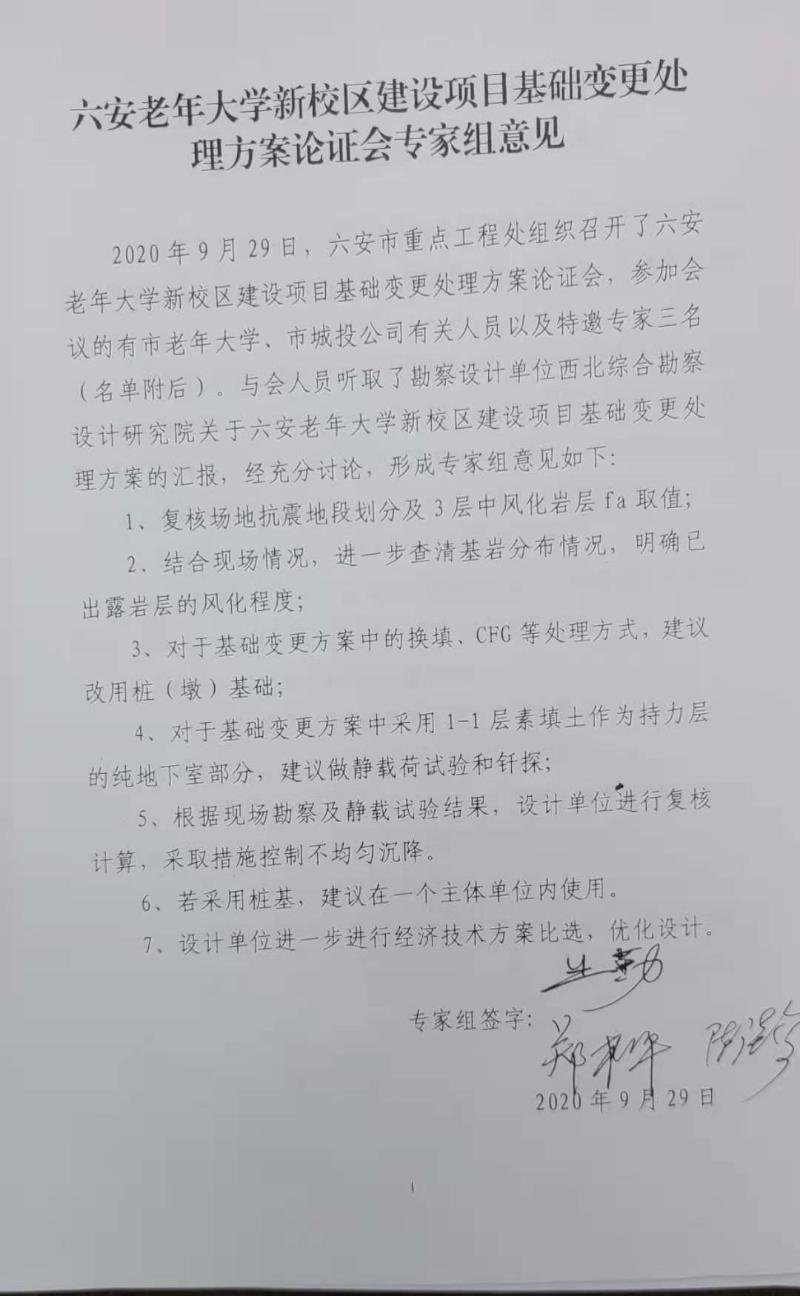 六安老年大学新校区建设项目基础变更处
理方案论证会专家组意见
2020年9月29日，六安市重点工程处组织召开了六安
老年大学新校区建设项目基础变更处理方案论证会，参加会
议的有市老年大学、市城投公司有关人员以及特邀专家三名
（名单附后）。与会人员听取了勘察设计单位西北综合勘察
设计研究院关于六安老年大学新校区建设项目基础变更处
理方案的汇报，经充分讨论，形成专家组意见如下：
1、复核场地抗震地段划分及3层中风化岩层fa取值；
2、结合现场情况，进一步查清基岩分布情况，明确已
出露岩层的风化程度；
3、对于基础变更方案中的换填、CFG等处理方式，建议
改用桩（墩）基础；
4、对于基础变更方案中采用1-1层素填土作为持力层
的纯地下室部分，建议做静载荷试验和钎探；
5、根据现场勘察及静载试验结果，设计单位进行复核
计算，采取措施控制不均匀沉降。
6、若采用桩基，建议在一个主体单位内使用。
7、设计单位进一步进行经济技术方案比选，优化设计。
专家组签字：
2020年9月29日
1